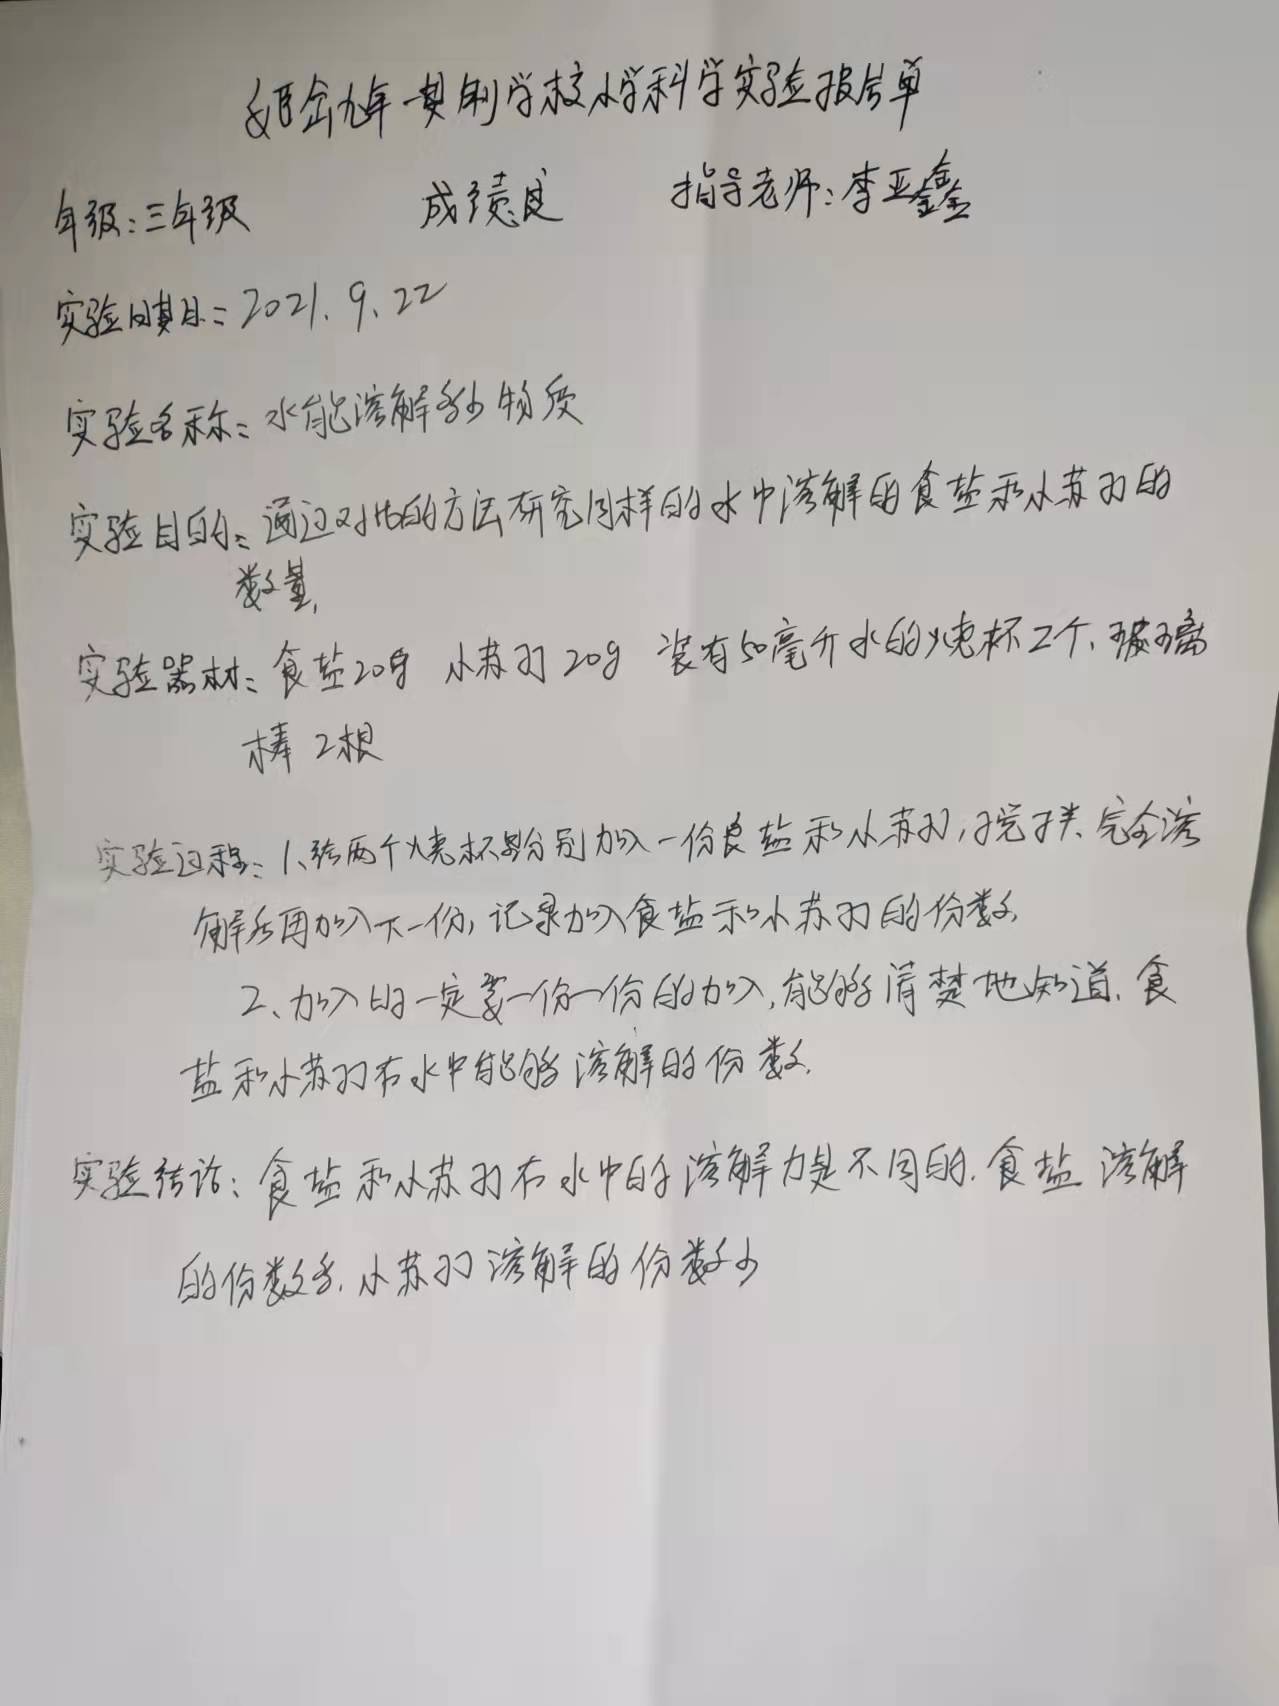 姬岔九年一贯制学校小学科学实验报告单
年级:三年级 成绩:良 指导老师:李亚鑫
实验日期:2021.9.22
实验名称:水能溶解多少物质
实验目的:通过对比的方法研究同样的水中溶解的食盐和小苏打的
数量,
实验器材:食盐20g 小苏打20g 装有50毫升水的烧杯2个、玻璃
棒2根
实验过程:1、给两个烧杯分别加入一份食盐和小苏打,搅拌、完全溶
解后再加入下一份,记录加入食盐和小苏打的份数,
2、加入时一定要一份一份的加入,能够清楚地知道.食
盐和小苏打在水中能够溶解的份数.
实验结论:食盐和小苏打在水中的溶解力是不同的.食盐溶解
的份数多.小苏打溶解的份数少